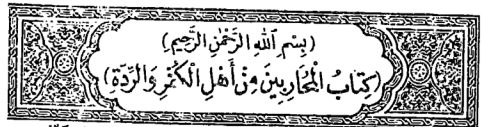 (بِسْمِ اللهِ الرَّحْمٰنِ الرَّحِيمِ)
(كِتَابُ الْمُحَارِبِينَ مِنْ أَهْلِ الْكُفْرِ وَالرِّدَّةِ)